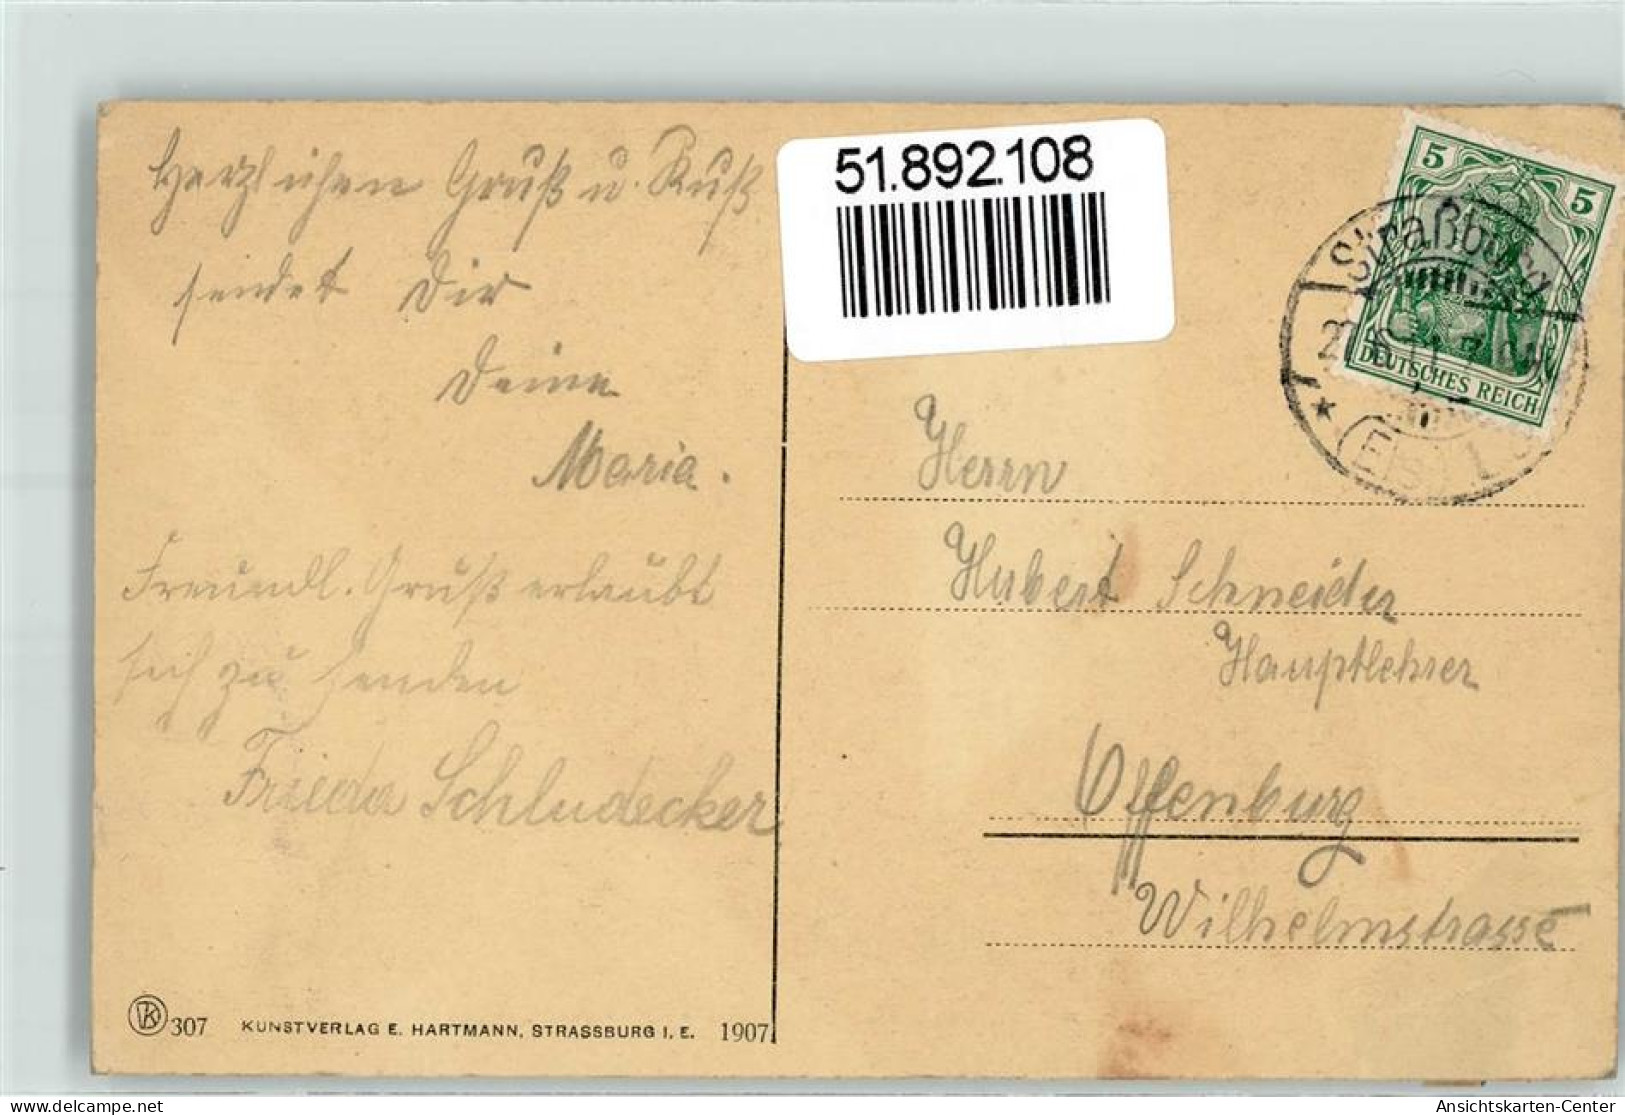 Herzlichen Gruß u. Kuß
sendet Dir
Deine
Maria.
Freundl. Gruß erlaubt
sich zu senden
Frieda Schludecker
307 KUNSTVERLAG E. HARTMANN, STRASSBURG I. E. 1907
51.892.108
5 5
DEUTSCHES REICH
Straßburg
Herrn
Hubert Schneider
Hauptlehrer
Offenburg
Wilhelmstrasse
delcampe.net
Ansichtskarten-Center